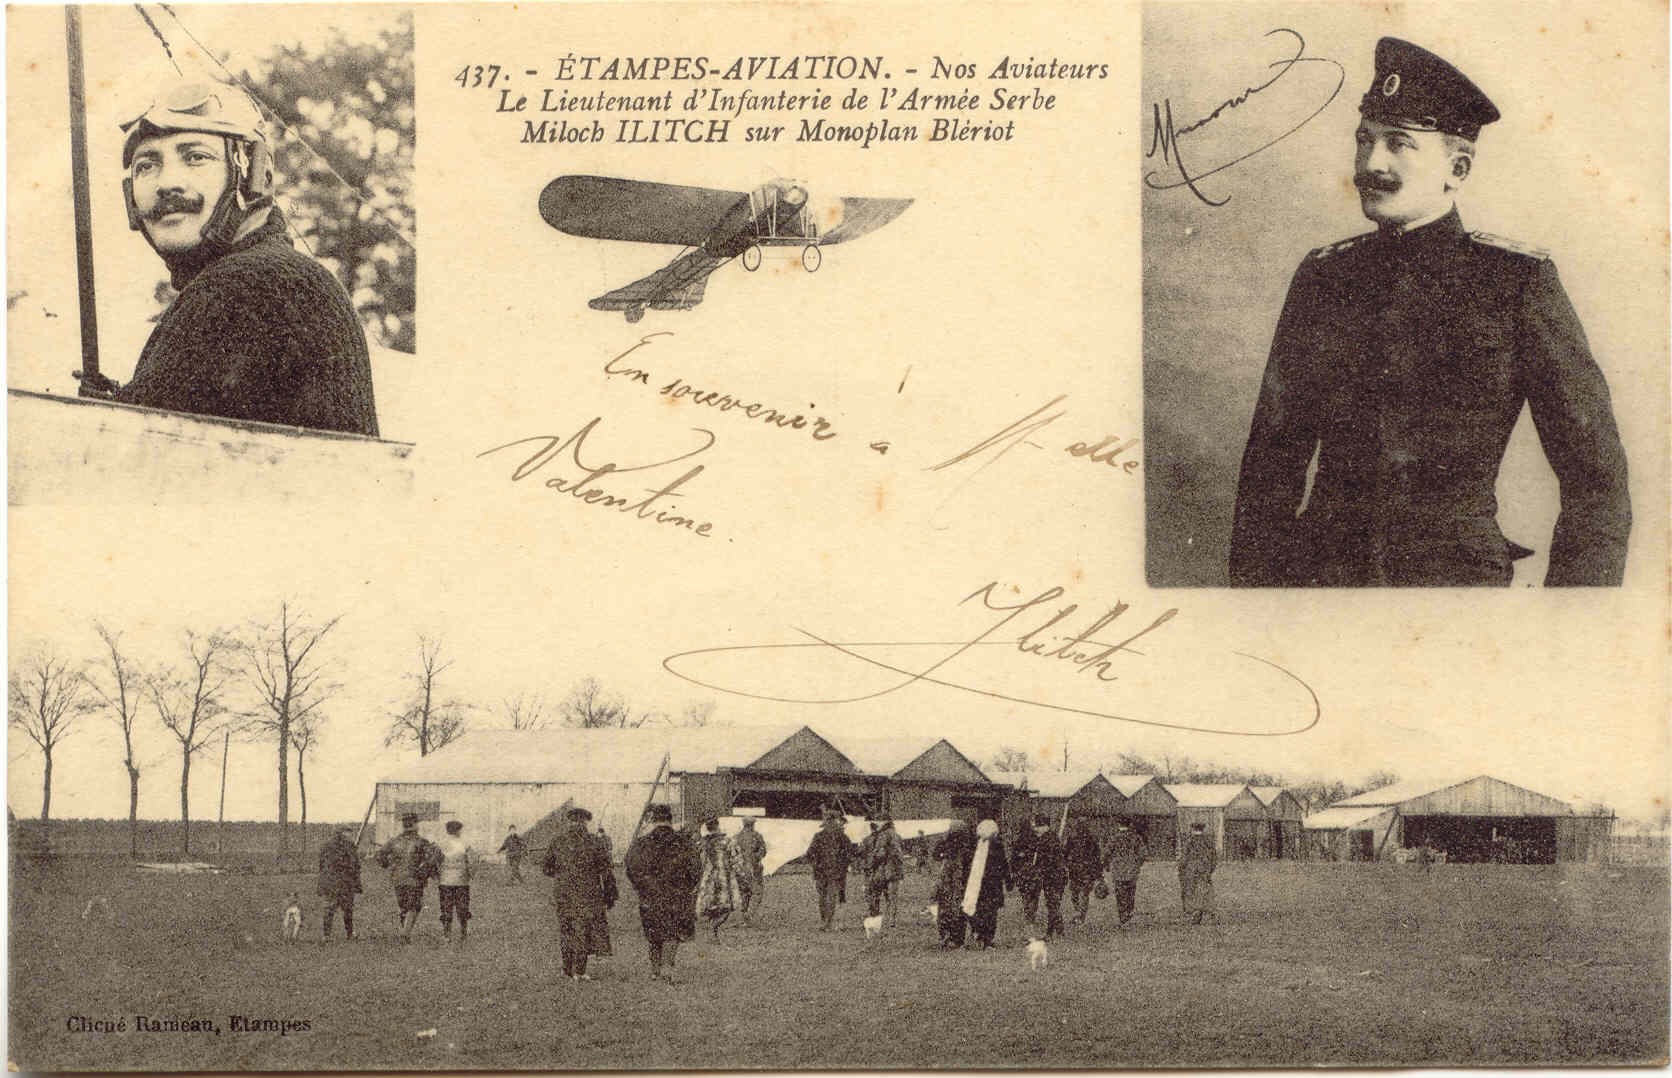 437. - ÉTAMPES-AVIATION. - Nos Aviateurs
Le Lieutenant d'Infanterie de l'Armée Serbe
Miloch ILITCH sur Monoplan Blériot
En souvenir à M-elle
Valentine.
Ilitch
Cliché Rameau, Etampes